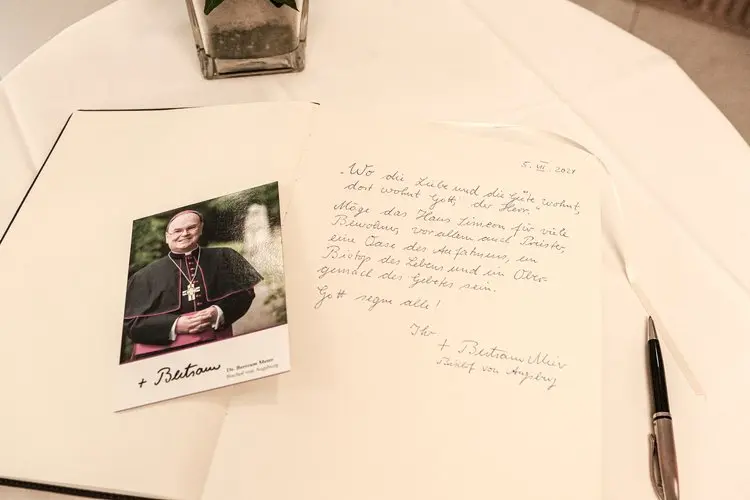 + Bertram
Dr. Bertram Meier
Bischof von Augsburg
5. VII. 2021
„Wo die Liebe und die Güte wohnt,
dort wohnt Gott der Herr."
Möge das Haus Simeon für viele
Bewohner, vor allem auch Priester,
eine Oase des Aufatmens, ein
Biotop des Lebens und ein Ober-
gemach des Gebetes sein.
Gott segne alle!
Ihr
+ Bertram Meier
Bischof von Augsburg